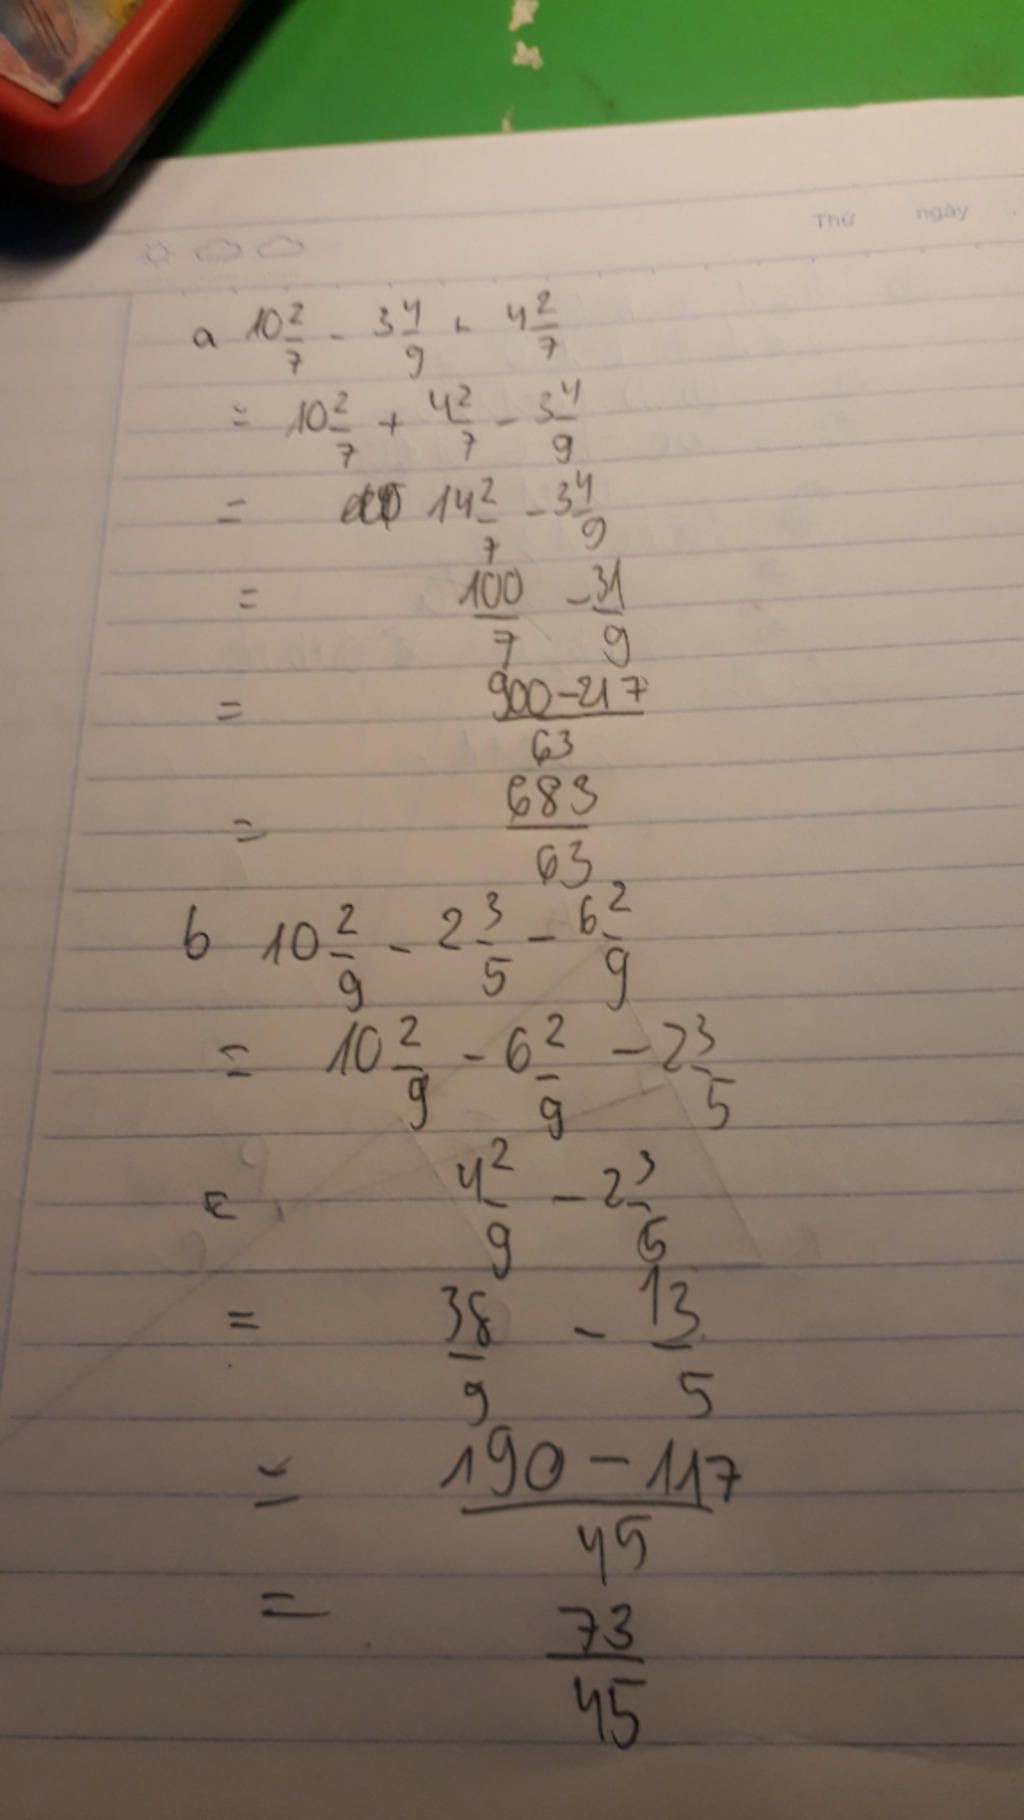 Thứ ngày
a 10 2/7 - 3 4/9 + 4 2/7
= 10 2/7 + 4 2/7 - 3 4/9
= 14 2/7 - 3 4/9
= 100/7 - 31/9
= 900-217/63
= 683/63
b 10 2/9 - 2 3/5 - 6 2/9
= 10 2/9 - 6 2/9 - 2 3/5
= 4 2/9 - 2 3/5
= 38/9 - 13/5
= 190-117/45
= 73/45